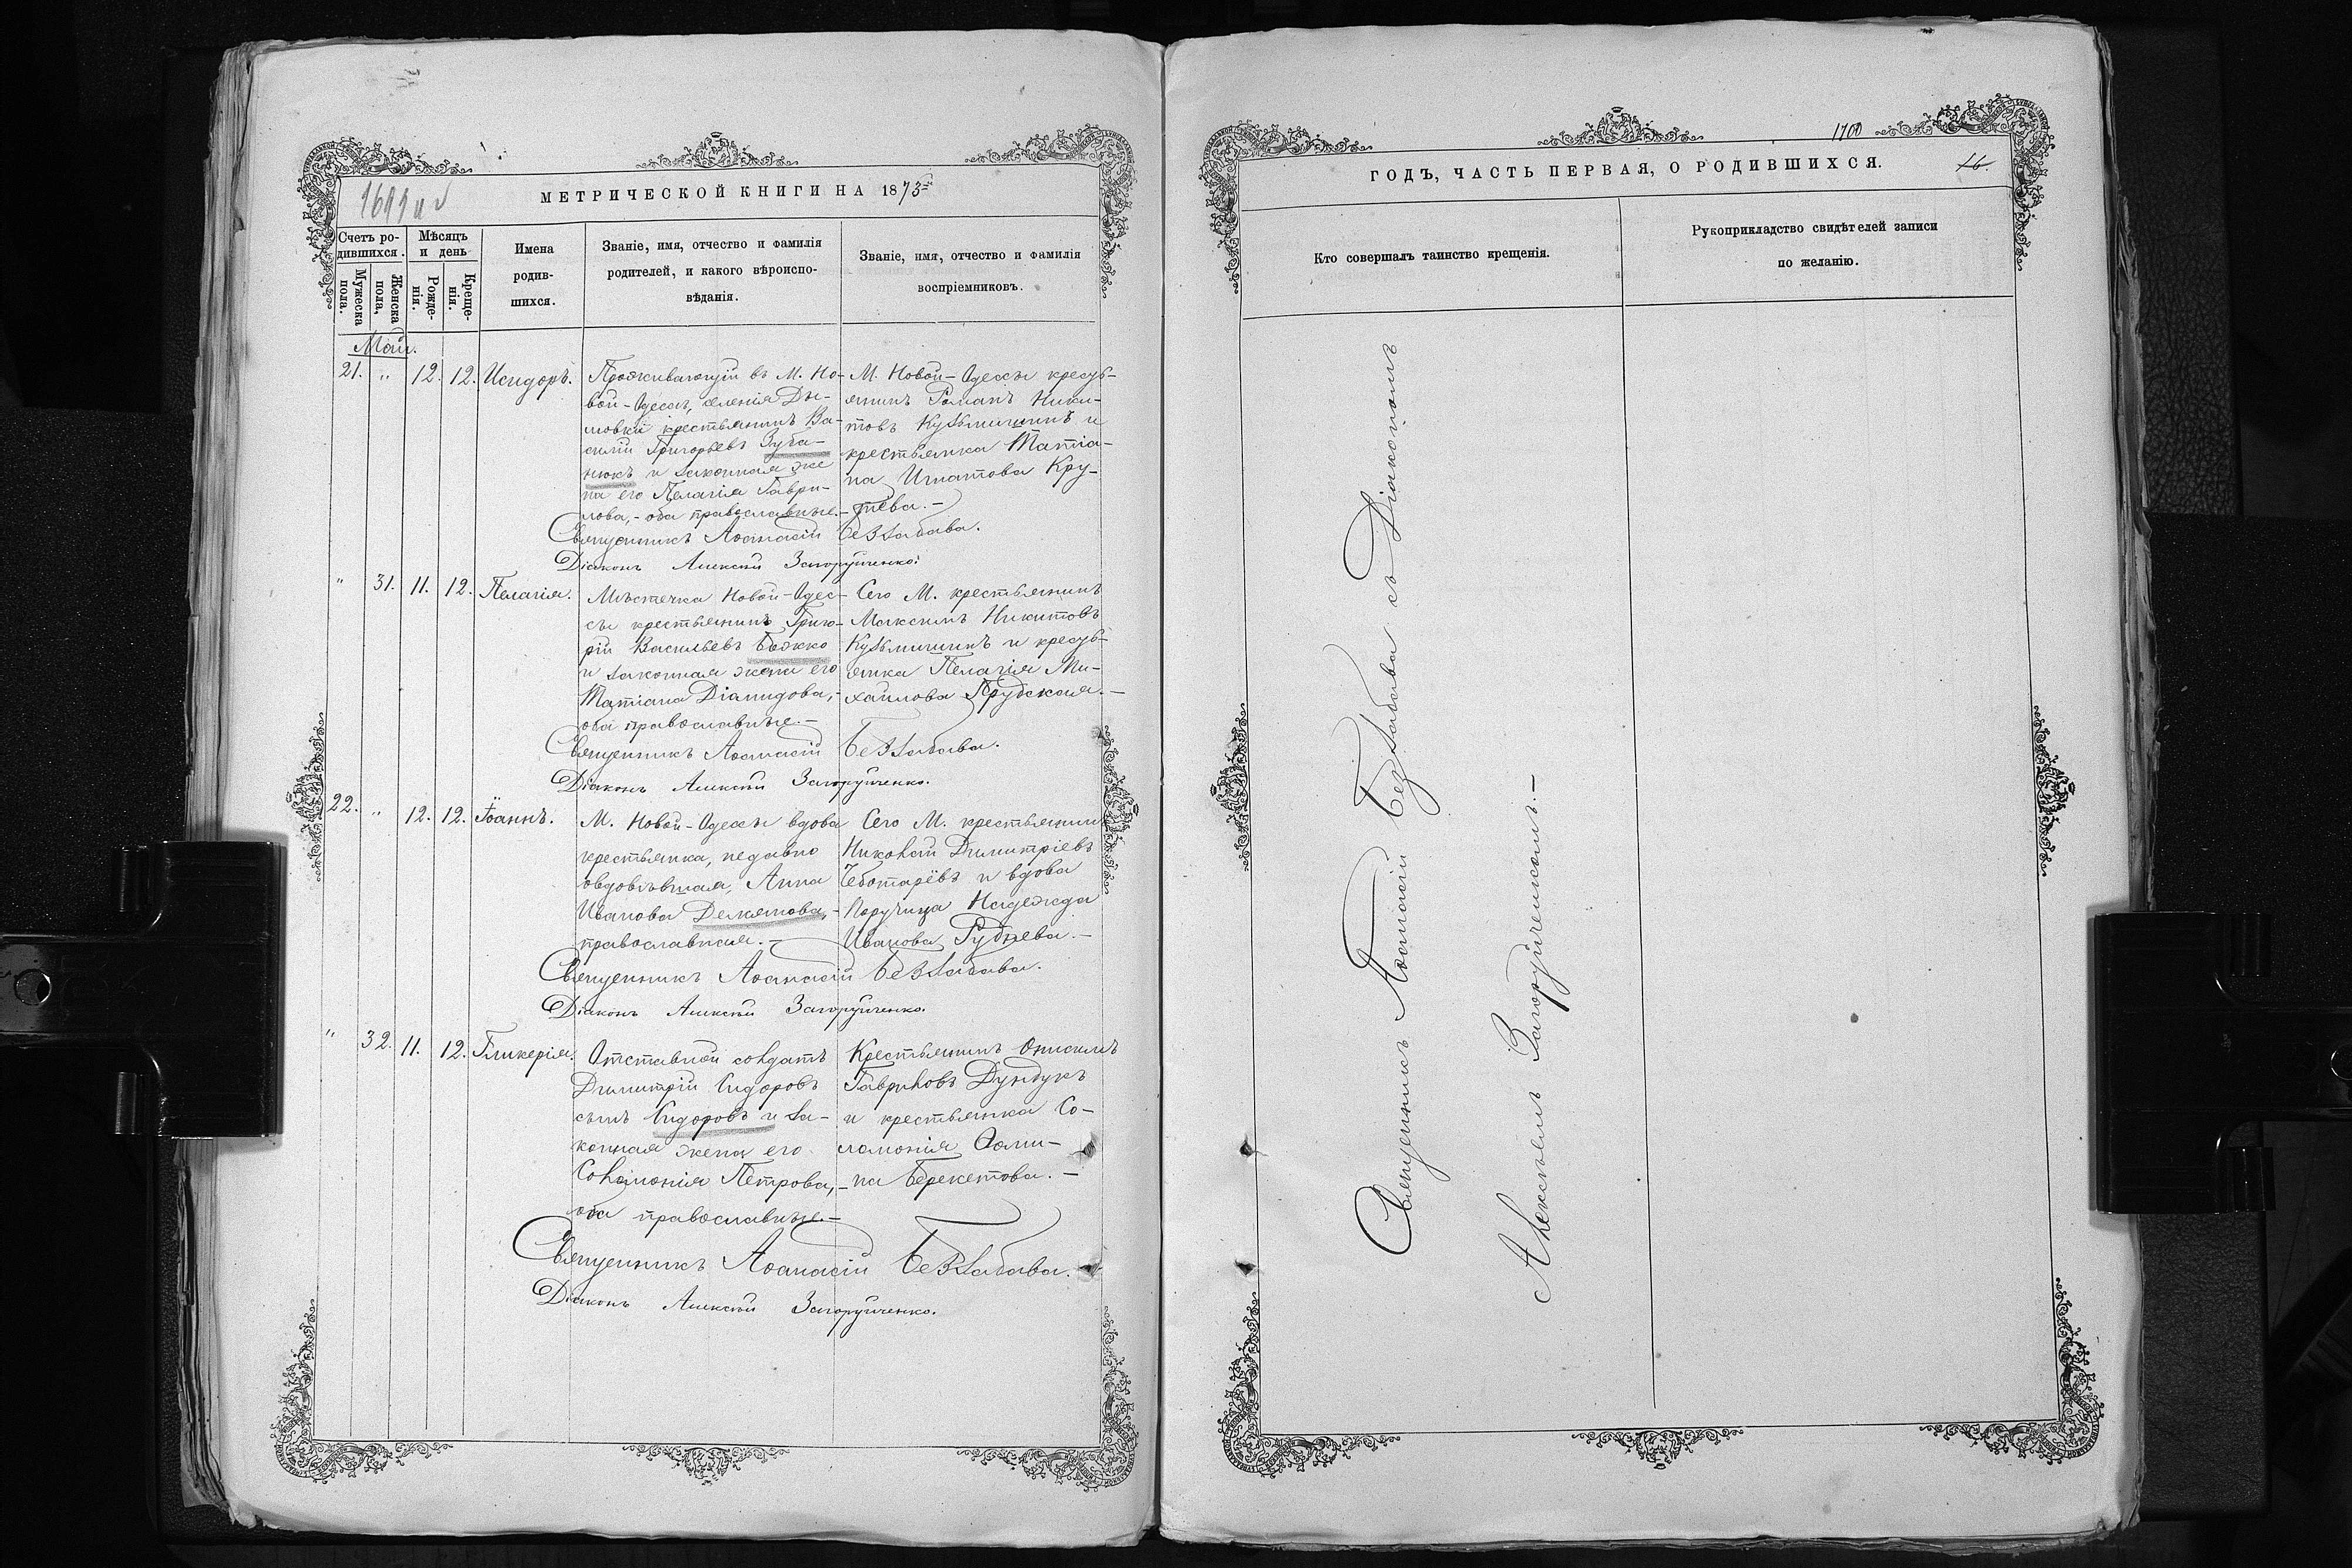 1699 и
МЕТРИЧЕСКОЙ КНИГИ НА 1873
Счетъ родившихся.
Мужеска пола.
Женска пола,
Мѣсяцъ и день
Рожденія.
Крещенія.
Имена родившихся.
Званіе, имя, отчество и фамилія
родителей, и какого вѣроиспо-
вѣданія.
Званіе, имя, отчество и фамилія
воспріемниковъ.
Май.
21. " 12. 12. Исидоръ.
Проживающій въ М. Но-
вой-Одессѣ, селенія
крестьянинъ Ва-
силій Григорьевъ Зуба-
нюкъ и законная же
на его Пелагія Гаври-
лова, - оба православные. -
М. Новой-Одессы кресть-
янинъ Романъ Ники-
товъ Кузьмишинъ и
крестьянка Татіа-
на Игнатова Кру-
Священникъ Аѳанасій Беззабава.
Діаконъ Алексѣй Загоруйченко.
" 31. 11. 12. Пелагія.
Мѣстечка Новой-Одес-
сы крестьянинъ Григо-
рій Васильевъ Божко
и законная жена его
Татіана Діамидова, -
оба православные. -
Сего М. крестьянинъ
Максимъ Никитовъ
Кузьмишинъ и кресть-
янка Пелагія Ми-
хайлова Прудская. -
Священникъ Аѳанасій Беззабава.
Діаконъ Алексѣй Загоруйченко.
22. " 12. 12. Іоаннъ.
М. Новой-Одессы вдова
крестьянка, недавно
овдовѣвшая, Анна
Иванова Делятова, -
православная. -
Сего М. крестьянинъ
Николай Димитріевъ
Чеботарёвъ и вдова
Поручица Надежда
Иванова Руднева. -
Священникъ Аѳанасій Беззабава.
Діаконъ Алексѣй Загоруйченко.
" 32. 11. 12. Гликерія.
Отставной солдатъ
Димитрій Сидоровъ
сынъ Сидоровъ и за-
конная жена его
Соломонія Петрова, -
оба православные. -
Крестьянинъ Онисимъ
Гавриловъ Дундукъ
и крестьянка Со-
ломонія Ѳоми-
на Берекетова. -
Священникъ Аѳанасій Беззабава.
Діаконъ Алексѣй Загоруйченко.
1700
16.
ГОДЪ, ЧАСТЬ ПЕРВАЯ, О РОДИВШИХСЯ.
Кто совершалъ таинство крещенія.
Рукоприкладство свидѣтелей записи
по желанію.
Священникъ Аѳанасій Беззабава съ Діакономъ
Алексѣемъ Загоруйченкомъ. -